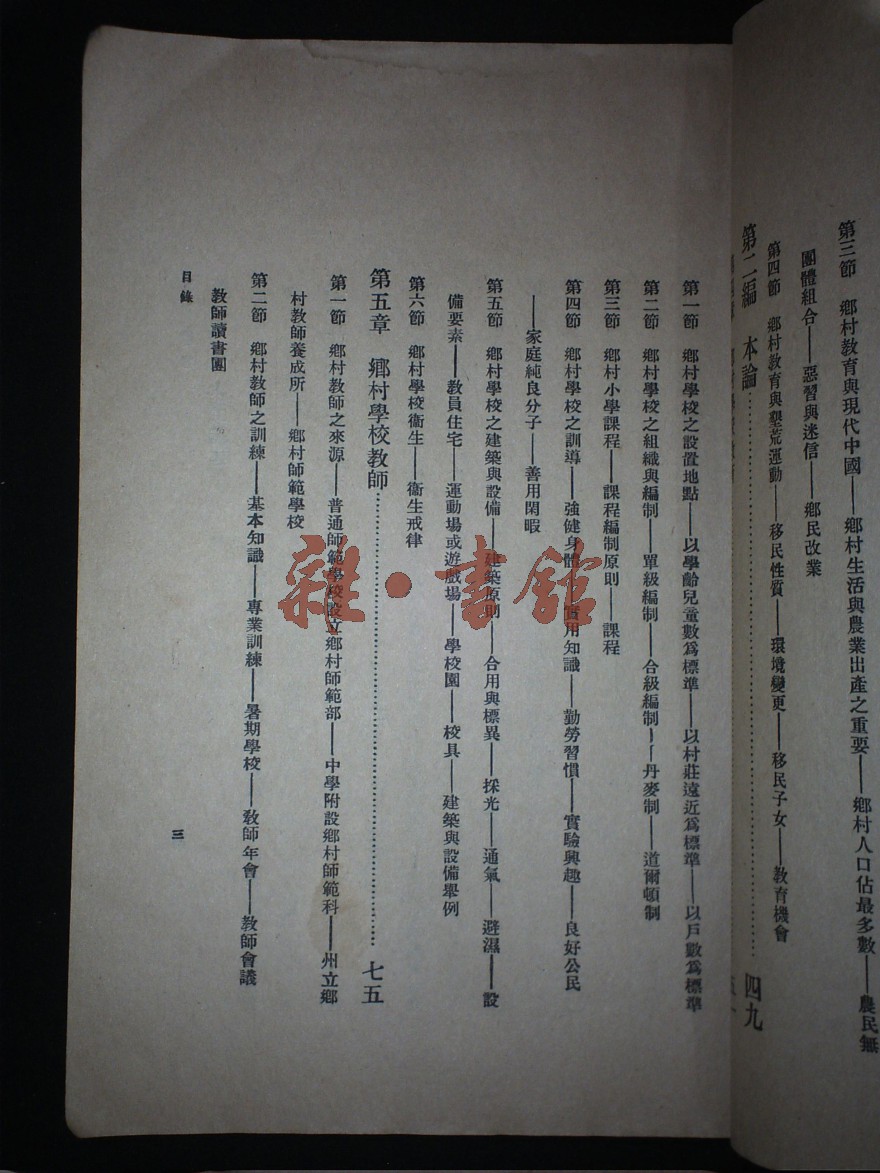 第三節　鄉村教育與現代中國——鄉村生活與農業出產之重要——鄉村人口佔最多數——農民無
團體組合——惡習與迷信——鄉民改業
第四節　鄉村教育與墾荒運動——移民性質——環境變更——移民子女——教育機會
第二編　本論……………………四九
第一節　鄉村學校之設置地點——以學齡兒童數爲標準——以村莊遠近爲標準——以戶數爲標準
第二節　鄉村學校之組織與編制——單級編制——合級編制——丹麥制——道爾頓制
第三節　鄉村小學課程——課程編制原則——課程
第四節　鄉村學校之訓導——強健身體——實用知識——勤勞習慣——實驗興趣——良好公民
——家庭純良分子——善用閑暇
第五節　鄉村學校之建築與設備——建築原則——合用與標異——採光——通氣——避濕——設
備要素——教員住宅——運動場或遊戲場——學校園——校具——建築與設備舉例
第六節　鄉村學校衞生——衞生戒律
第五章　鄉村學校教師……………………七五
第一節　鄉村教師之來源——普通師範學校設立鄉村師範部——中學附設鄉村師範科——州立鄉
村教師養成所——鄉村師範學校
第二節　鄉村教師之訓練——基本知識——專業訓練——暑期學校——教師年會——教師會議
教師讀書團
目錄
三
雜·書舘